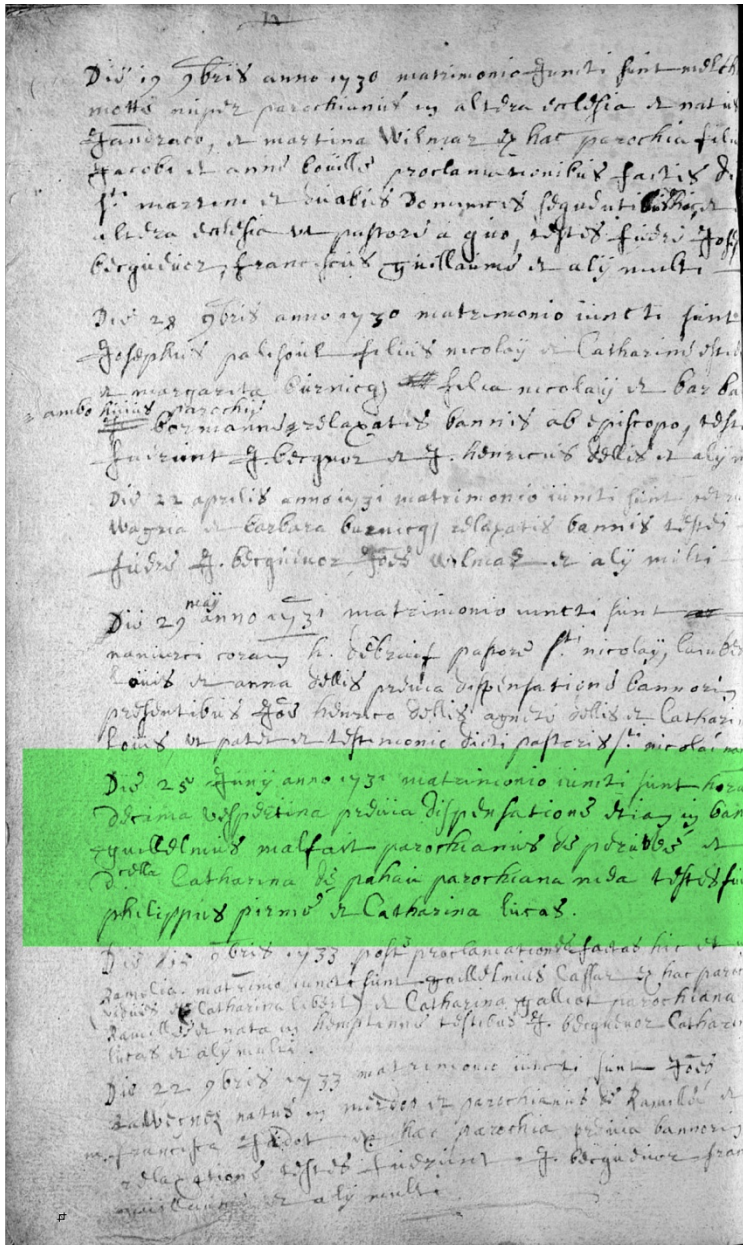 Die 19 9bris anno 1730 matrimonio juncti sunt melch
motte nuper parochianus in altera ecclesia et natus
Jandraco, et martina Wilmar ex hac parochia filia
Jacobi et anne louille proclamationibus factis
sti martini et duabus Dominicis sequentibus hic et
altera ecclesia ut pastore a quo, testes fuere Jose
becquevor, franciscus guillaume et alij multi
Die 28 9bris anno 1730 matrimonio iuncti sunt
Josephus palisoul filius nicolaij et Catharine
et margarita burnicq, filia nicolaij et barba
ambo huius parochij
bormanne relaxatis bannis ab episcopo, teste
fuerunt J. becquor et J. henricus dellis et alij m
Die 22 aprilis anno 1731 matrimonio iuncti sunt petru
wagna et barbara burnicq, relaxatis bannis testes
fuere J. becquevor Joes wilmar et alij multi
maij
Die 29 anno 1731 matrimonio iuncti sunt
namurci coram h. pastore sti nicolaij, lamber
louis et anna dellis previa dispensatione bannorum
presentibus Joe henrico dellis agnete dellis et Cathari
louis, ut patet ex testimonio dicti pastoris sti nicolai
Die 25 Junij anno 1731 matrimonio iuncti sunt hora
decima vespertina previa dispensatione etiam in ban
guillelmus malfait parochianus de peruwes et
Dcella Catharina de pahau parochiana mea testes fue
philippus pirme et Catharina lucas.
Die 9bris 1733 post proclamationes factas hic et
Ramelia matrimonio iuncti sunt guillelmus Cassar ex hac paroc
viduus Catharina libert) et Catharina galliot parochiana
Ramillies et nata in hemptinne testibus J. becquevor Cathari
lucas et alij multi.
Die 22 9bris 1733 matrimonio iuncti sunt Joes
natus in merdop et parochianus de Ramillie et
m. francisca ex hac parochia previa bannorum
relaxatione testes fuerunt J. becquevor fran
guillaume et alij multi.